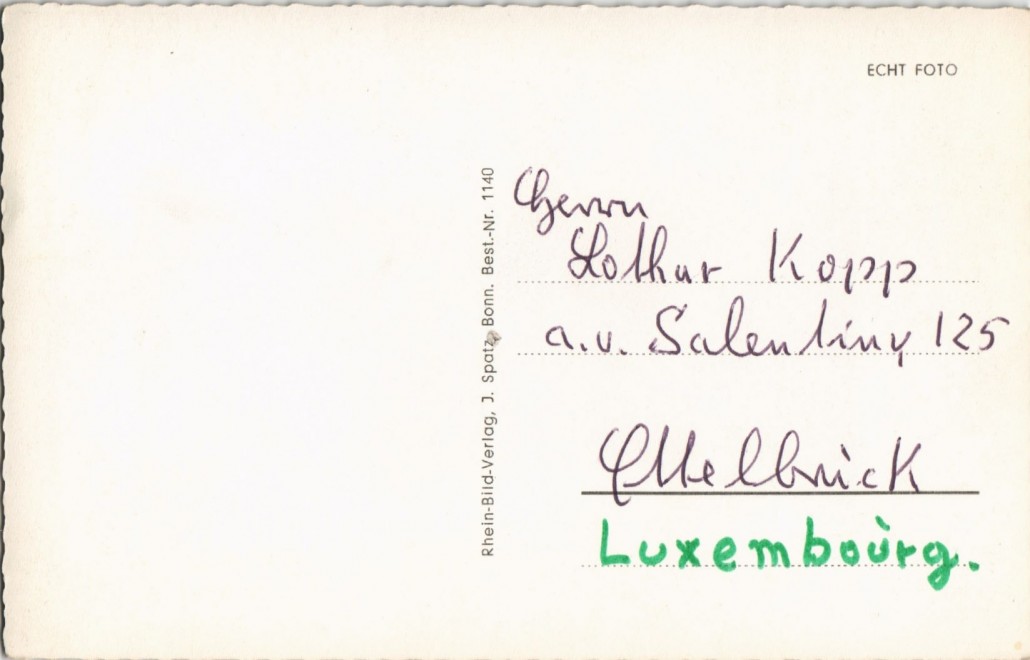 ECHT FOTO
Rhein-Bild-Verlag, J. Spatz, Bonn. Best.-Nr. 1140
Herrn
Lothar Kopp
a.v. Salentiny 125
Ettelbrück
Luxembourg.